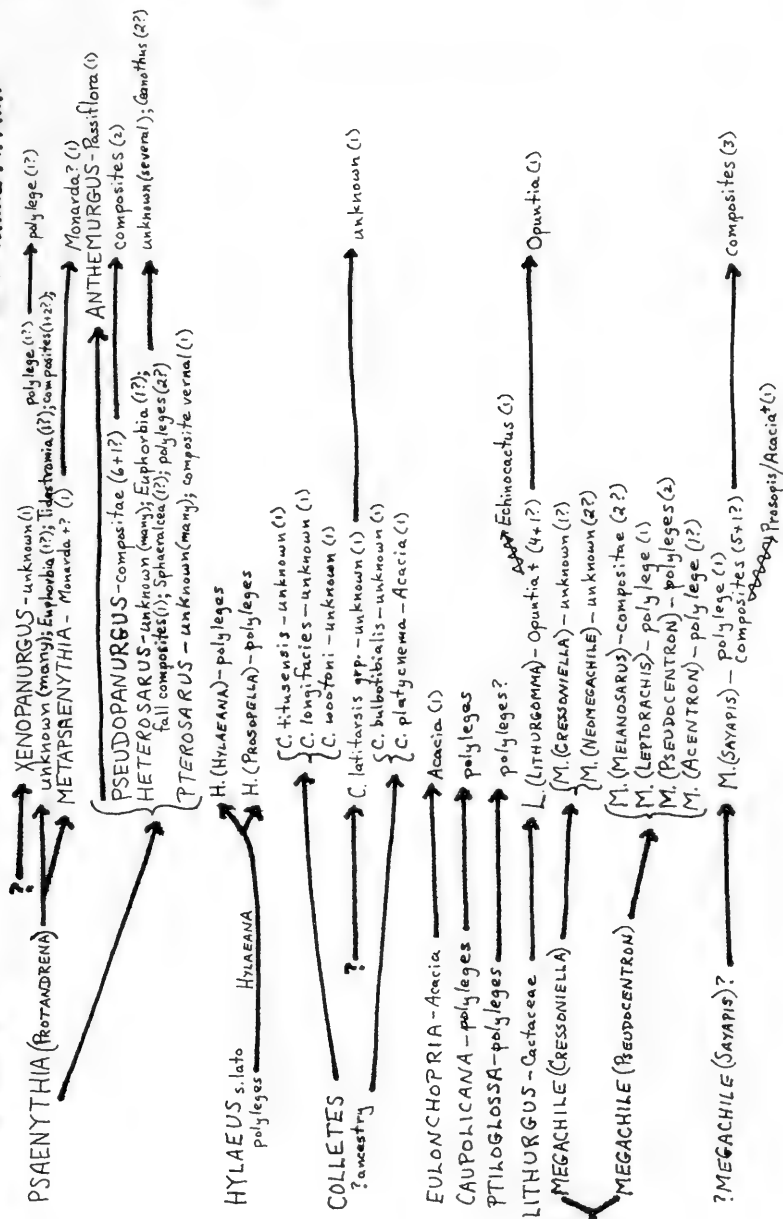 PSAENYTHIA (PROTANDRENA)
?
XENOPANURGUS-unknown (1)
polylege (1?)
polylege (1?)
unknown (many); Euphorbia (1?); Tidestromia (1?); composites (1+2?);
METAPSAENYTHIA - Monarda+? (1)
Monarda? (1)
ANTHEMURGUS-Passiflora (1)
PSEUDOPANURGUS-compositae (6+1?)
composites (2)
HETEROSARUS-unknown (many); Euphorbia (1?);
fall composites (1); Sphaeralcea (1?); polyleges (2?)
unknown (several); Ceanothus (2?)
PTEROSARUS-unknown (many); composite vernal (1)
HYLAEUS s. lato
polyleges
HYLAEANA
H. (HYLAEANA)-polyleges
H. (PROSOPELLA)-polyleges
COLLETES
? ancestry
C. titusensis-unknown (1)
C. longifacies-unknown (1)
C. wootoni-unknown (1)
?
C. latitarsis grp.-unknown (1)
unknown (1)
C. bulbotibialis-unknown (1)
C. platycnema-Acacia (1)
EULONCHOPRIA-Acacia
Acacia (1)
CAUPOLICANA-polyleges
polyleges
PTILOGLOSSA-polyleges
polyleges?
LITHURGUS-Cactaceae
L. (LITHURGOMMA)-Opuntia+ (4+1?)
Echinocactus (1)
Opuntia (1)
MEGACHILE (CRESSONIELLA)
M. (CRESSONIELLA)-unknown (1?)
M. (NEOMEGACHILE)-unknown (2?)
MEGACHILE (PSEUDOCENTRON)
M. (MELANOSARUS)-compositae (2?)
M. (LEPTORACHIS)-polylege (1)
M. (PSEUDOCENTRON)-polyleges (2)
M. (ACENTRON)-polylege (1?)
? MEGACHILE (SAYAPIS)?
M. (SAYAPIS) - polylege (1)
Composites (5+1?)
Composites (3)
Prosopis/Acacia+ (1)